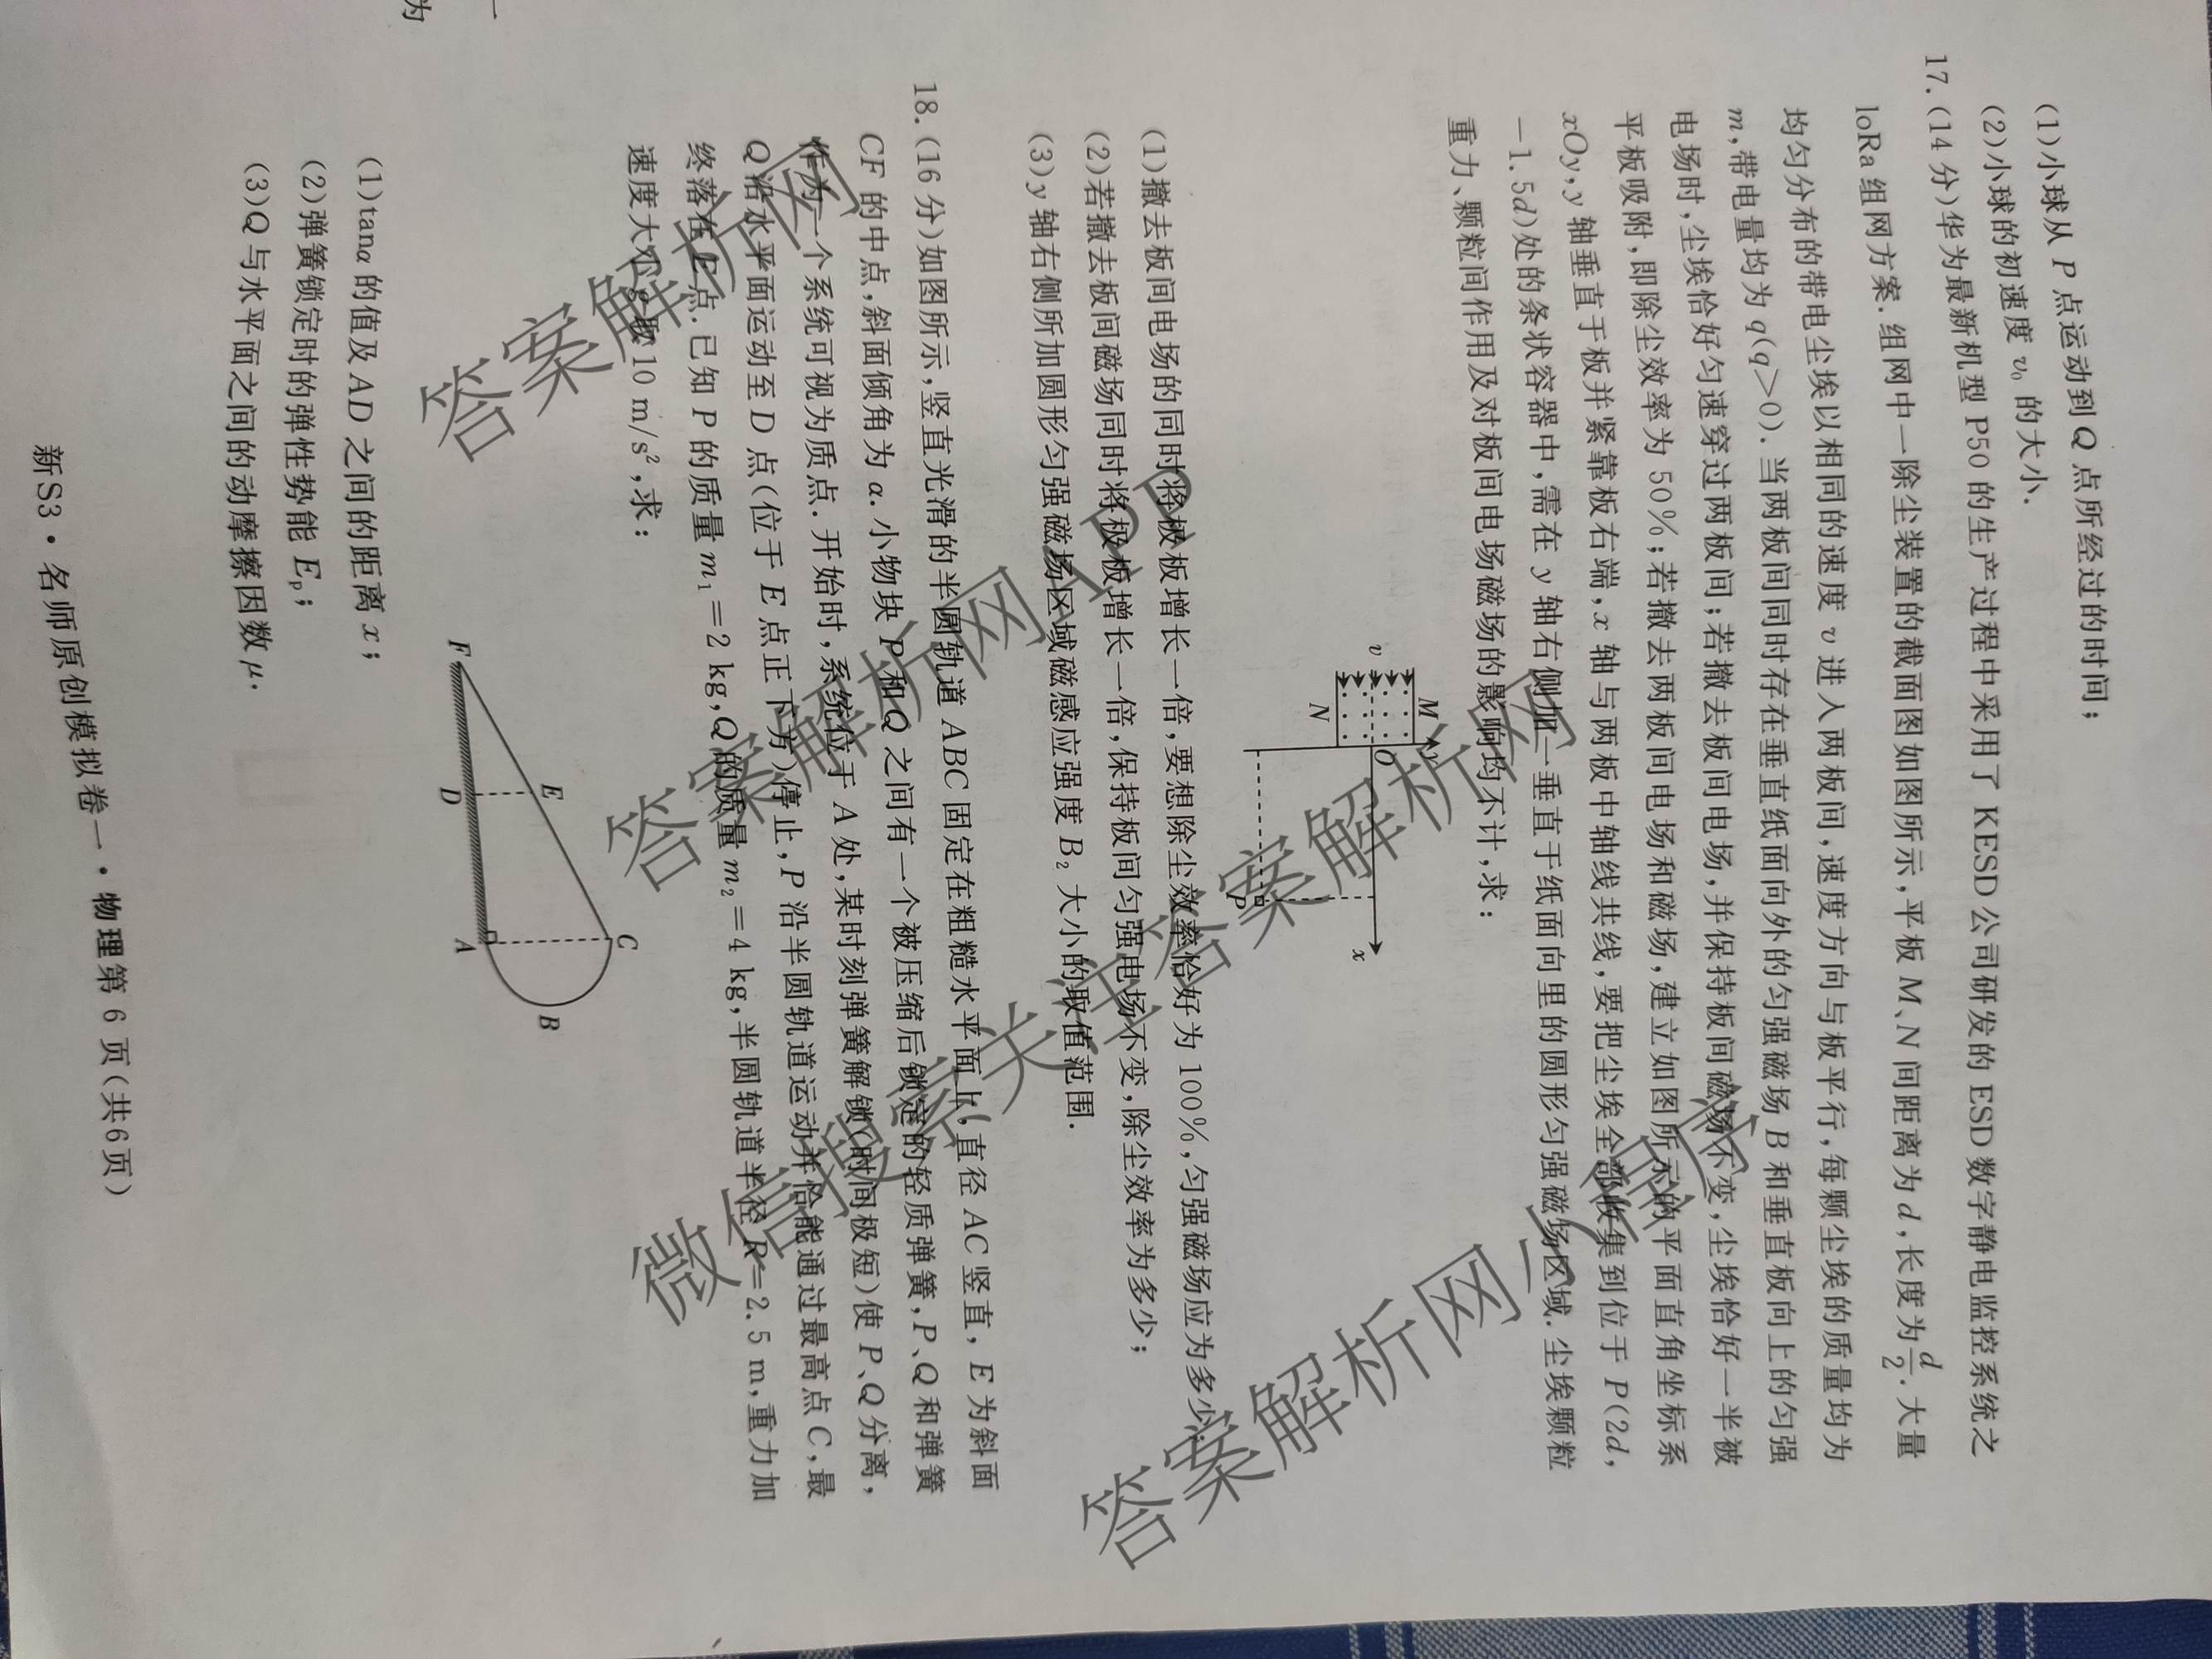 (1)小球从 P 点运动到 Q 点所经过的时间;
(2)小球的初速度 v₀ 的大小.
17.(14 分)华为最新机型 P50 的生产过程中采用了 KESD 公司研发的 ESD 数字静电监控系统之
loRa 组网方案. 组网中一除尘装置的截面图如图所示,平板 M、N 间距离为 d,长度为 d/2. 大量
均匀分布的带电尘埃以相同的速度 v 进入两板间,速度方向与板平行,每颗尘埃的质量均为
m,带电量均为 q(q>0). 当两板间同时存在垂直纸面向外的匀强磁场 B 和垂直板向上的匀强
电场时,尘埃恰好匀速穿过两板间;若撤去板间电场,并保持板间磁场不变,尘埃恰好一半被
平板吸附,即除尘效率为 50%;若撤去两板间电场和磁场,建立如图所示的平面直角坐标系
xOy,y 轴垂直于板并紧靠板右端,x 轴与两板中轴线共线,要把尘埃全部收集到位于 P(2d,
-1.5d)处的条状容器中,需在 y 轴右侧加一垂直于纸面向里的圆形匀强磁场区域. 尘埃颗粒
重力、颗粒间作用及对板间电场磁场的影响均不计,求:
M
y
v
O
x
N
P
(1)撤去板间电场的同时将极板增长一倍,要想除尘效率恰好为 100%,匀强磁场应为多少;
(2)若撤去板间磁场同时将极板增长一倍,保持板间匀强电场不变,除尘效率为多少;
(3)y 轴右侧所加圆形匀强磁场区域磁感应强度 B₂ 大小的取值范围.
18.(16 分)如图所示,竖直光滑的半圆轨道 ABC 固定在粗糙水平面上,直径 AC 竖直, E 为斜面
CF 的中点,斜面倾角为 α. 小物块 P 和 Q 之间有一个被压缩后锁定的轻质弹簧,P、Q 和弹簧
作为一个系统可视为质点. 开始时,系统位于 A 处,某时刻弹簧解锁(时间极短)使 P、Q 分离,
Q 沿水平面运动至 D 点(位于 E 点正下方)停止,P 沿半圆轨道运动并恰能通过最高点 C,最
终落在 F 点. 已知 P 的质量 m₁=2 kg,Q 的质量 m₂=4 kg,半圆轨道半径 R=2.5 m,重力加
速度大小 g 取 10 m/s²,求:
C
E
B
F
D
A
(1)tanα 的值及 AD 之间的距离 x;
(2)弹簧锁定时的弹性势能 Eₚ;
(3)Q 与水平面之间的动摩擦因数 μ.
新S3・名师原创模拟卷一・物理第 6 页(共6页)
为
答案解析网
答案解析网APP
答案解析网
答案解析网